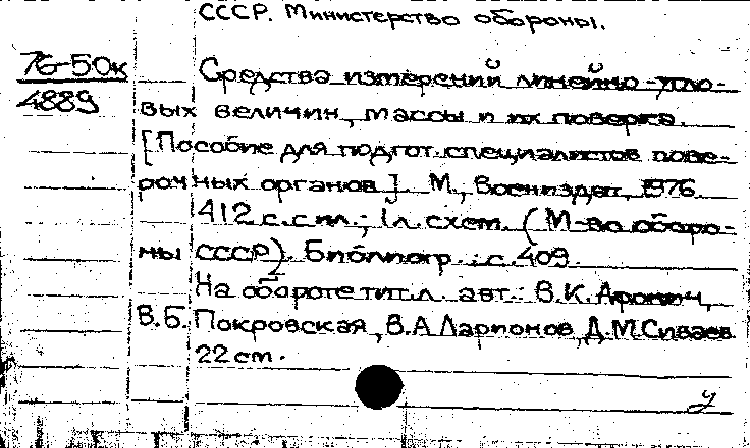 СССР. Министерство обороны.
76-50к
4889
Средства измерений линейно-угло-
вых величин, массы и их поверка.
[Пособие для подгот. специалистов пове-
рочных органов]. М., Воениздат, 1976.
412 с. с ил.; 1 л. схем. (М-во оборо-
ны СССР). Библиогр.: с. 409.
На обороте тит. л. авт.: В.К. Аронич,
В.Б. Покровская, В.А. Ларионов, Д.М. Сиваев
22 см.
у